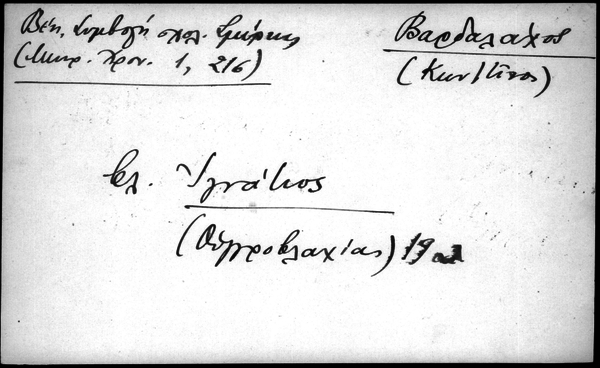 Βέη, Συμβολή σχολ. Σμύρνης
(Μικρ. Χρον. 1, 216)
Βαρδαλάχος
(Κων/τῖνος)
βλ. Ἰγνάτιος
(Οὑγγροβλαχίας) 19